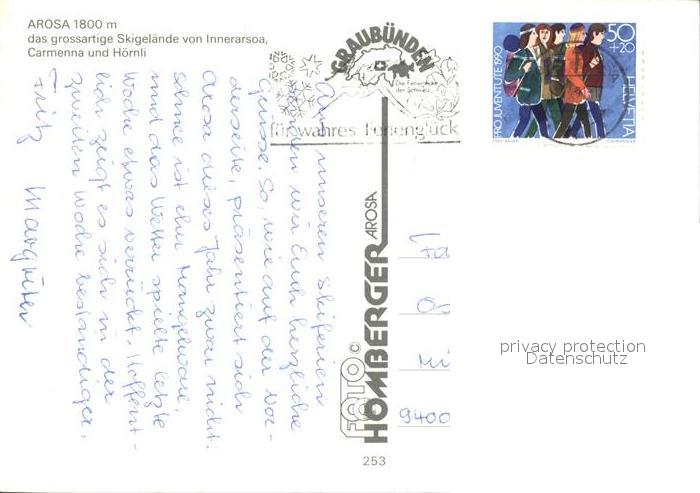 AROSA 1800 m
das grossartige Skigelände von Innerarosa,
Carmenna und Hörnli
GRAUBÜNDEN
Die Ferienecke
der Schweiz
für wahres Ferienglück
PRO JUVENTUTE 1990
50
+20
HELVETIA
COURVOISIER
Aus unseren Skiferien
senden wir Euch herzliche
Grüsse. So, wie auf der Vor-
derseite, präsentiert sich
Arosa dieses Jahr zwar nicht:
Schnee ist eher Mangelware,
und das Wetter spielte letzte
Woche etwas verrückt. Hoffent-
lich zeigt es sich in der
zweiten Woche beständiger.
Fritz Margriter
FOTO ©
HOMBERGER AROSA
Mi
9400
253
privacy protection
Datenschutz